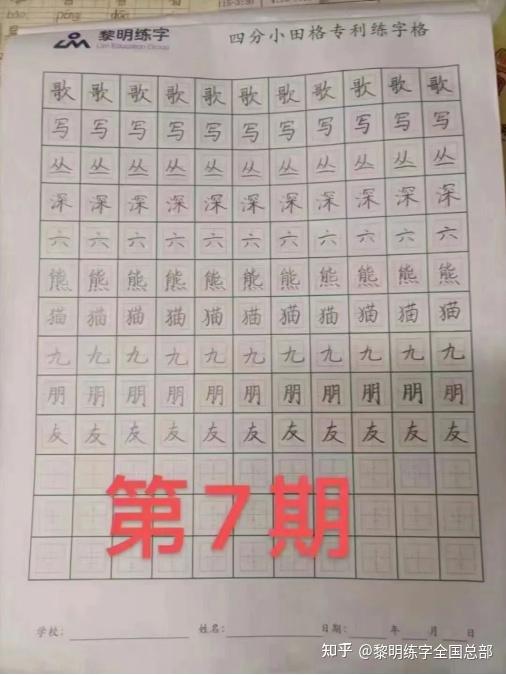 黎明练字
Lim Education Group
四分小田格专利练字格
歌歌歌歌歌歌歌歌歌歌歌
写写写写写写写写写写写
丛丛丛丛丛丛丛丛丛丛丛
深深深深深深深深深深深
六六六六六六六六六六六
熊熊熊熊熊熊熊熊熊熊熊
猫猫猫猫猫猫猫猫猫猫猫
九九九九九九九九九九九
朋朋朋朋朋朋朋朋朋朋朋
友友友友友友友友友友友
第7期
学校： 姓名： 日期： 年 月 日
知乎 @黎明练字全国总部